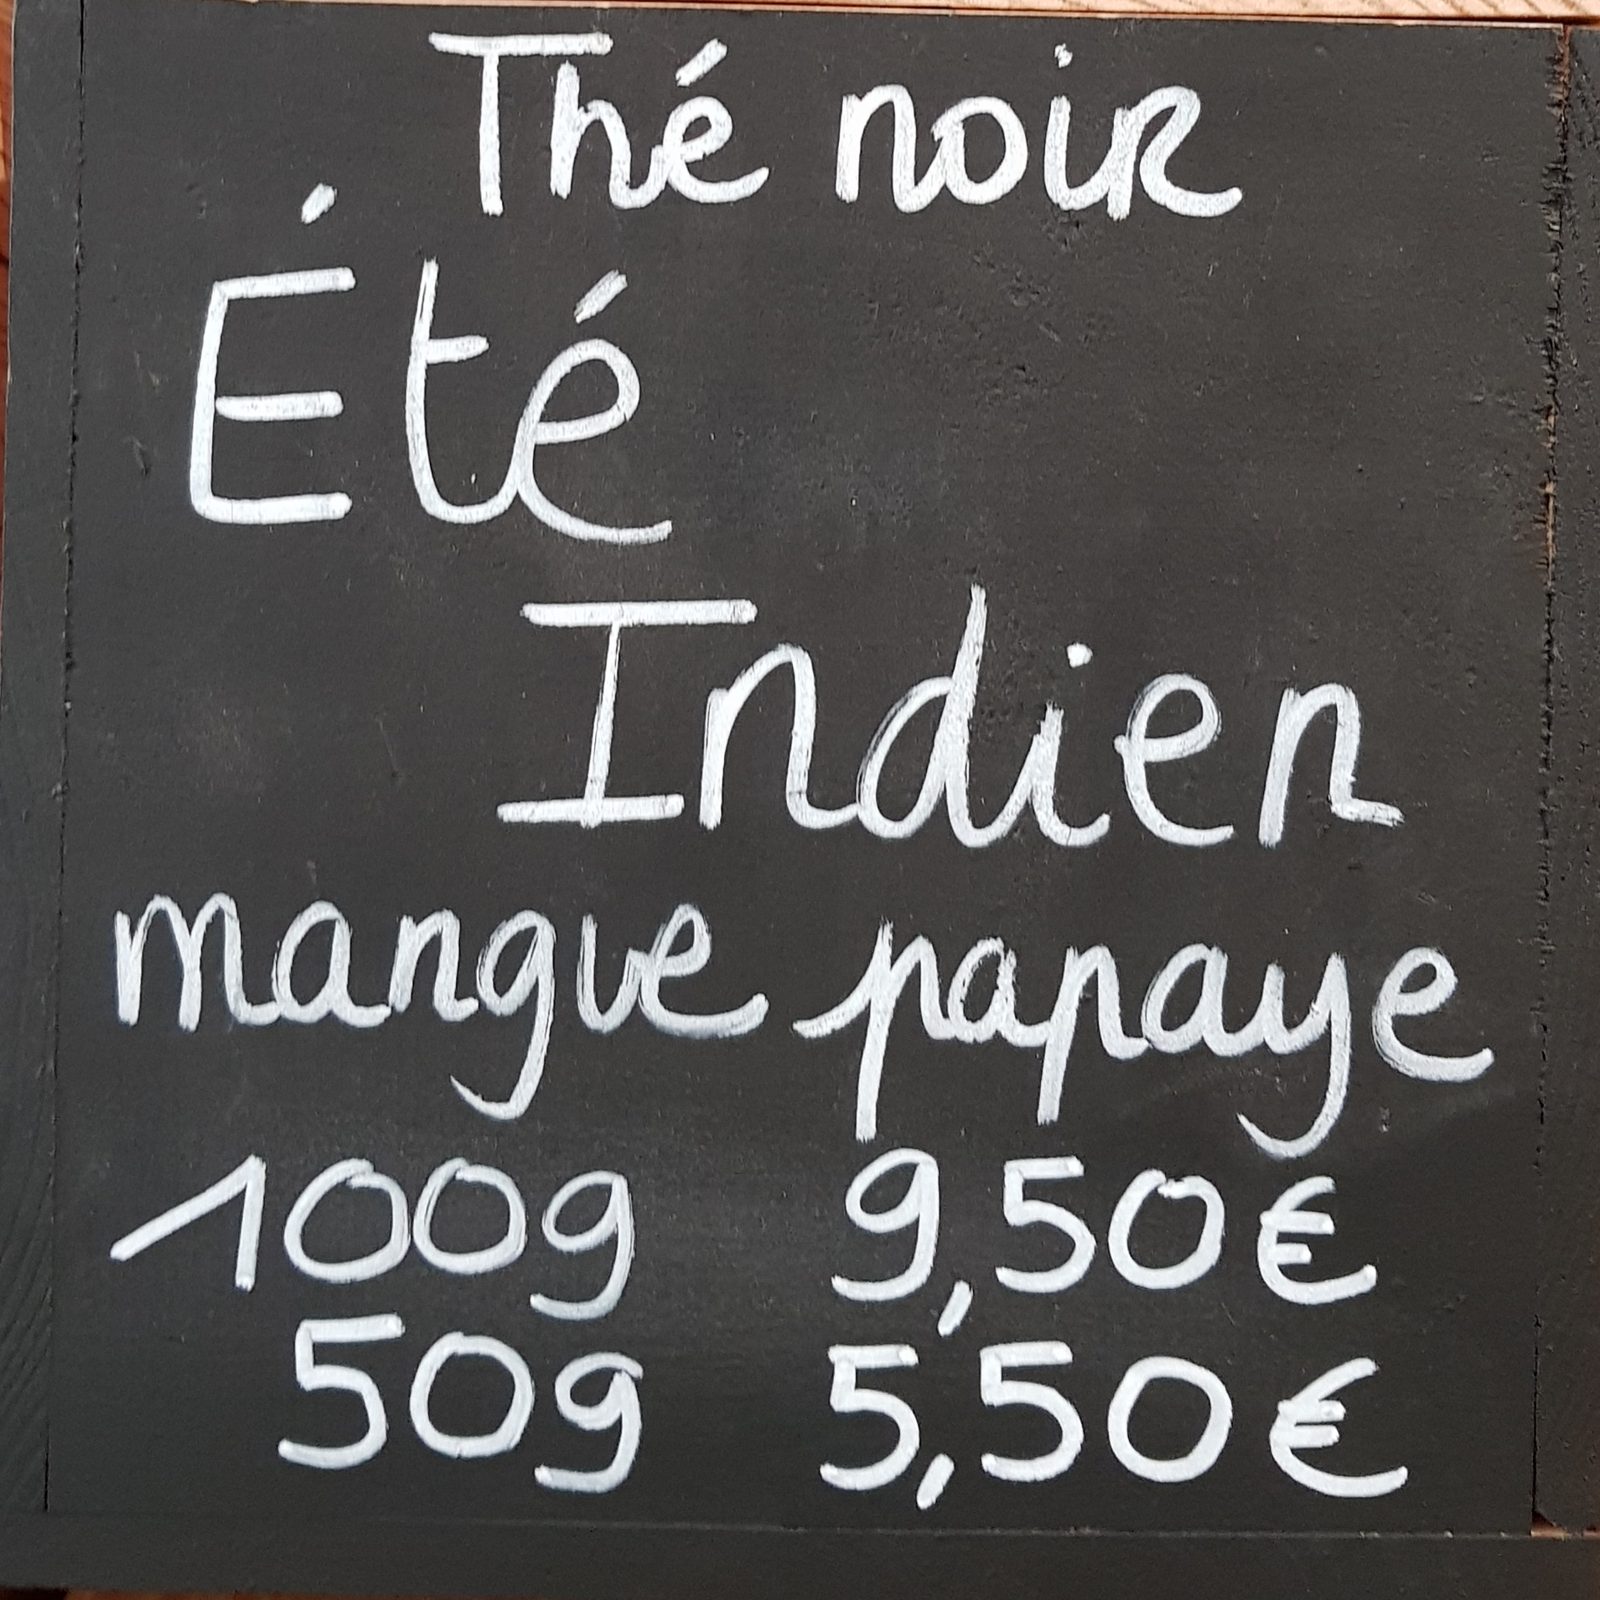 Thé noir
Été
Indien
mangue papaye
100g 9,50€
50g 5,50€